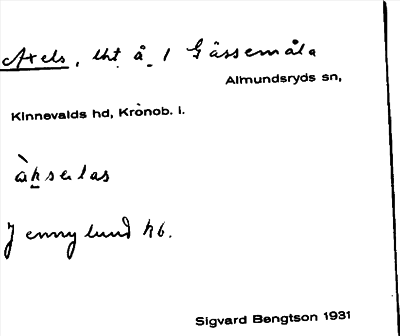 Axels, lht å 1 Gässemåla
Almundsryds sn,
Kinnevalds hd, Kronob. l.
àkselas
Jennylund hb.
Sigvard Bengtson 1931